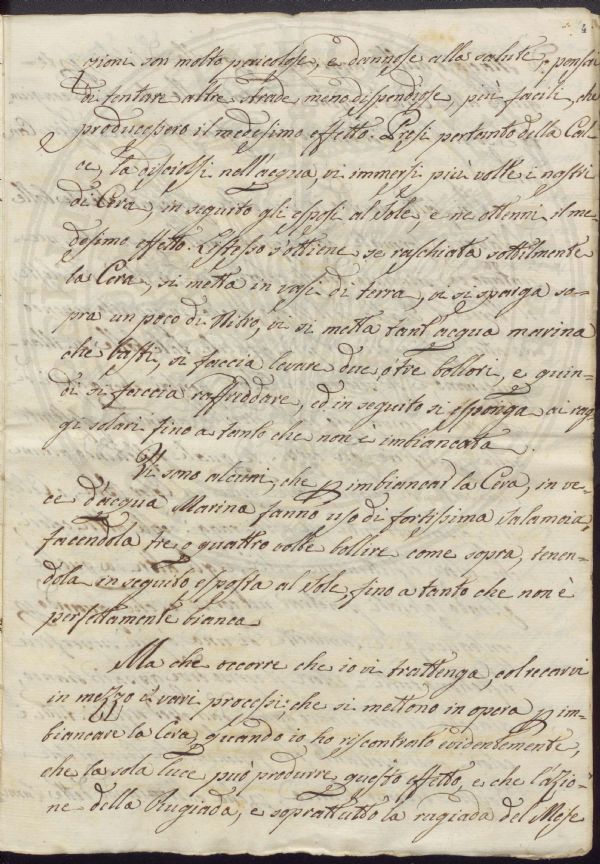 4
zioni son molto pericolose, e dannose alla salute, pensai
di tentare altre strade meno dispendiose, più facili, che
producessero il medesimo effetto. Presi pertanto della Cal-
ce, la disciolsi nell'acqua, vi immersi più volte i nastri
di Cera, in seguito gli esposi al Sole, e ne ottenni il me-
desimo effetto. L'istesso s'ottiene se raschiata sottilmente
la Cera, si metta in vasi di terra, vi si sparga so-
pra un poco di Nitro, vi si metta tant'acqua marina
che basti, si faccia levare due, o tre bollori, e quin-
di si faccia raffreddare, ed in seguito si esponga ai rag-
gi solari fino a tanto che non è imbiancata.
Vi sono alcuni, che p imbiancar la Cera, in ve-
ce d'acqua Marina fanno uso di fortissima Salamoia,
facendola tre, o quattro volte bollire come sopra, tenen-
dola in seguito esposta al Sole, fino a tanto che non è
perfettamente bianca.
Ma che occorre che io vi trattenga, col recarvi
in mezzo i vari processi, che si mettono in opera p im-
biancare la Cera, quando io ho riscontrato evidentemente,
che la sola luce può produrre questo effetto, e che l'azio-
ne della Rugiada, e soprattutto la rugiada del Mese